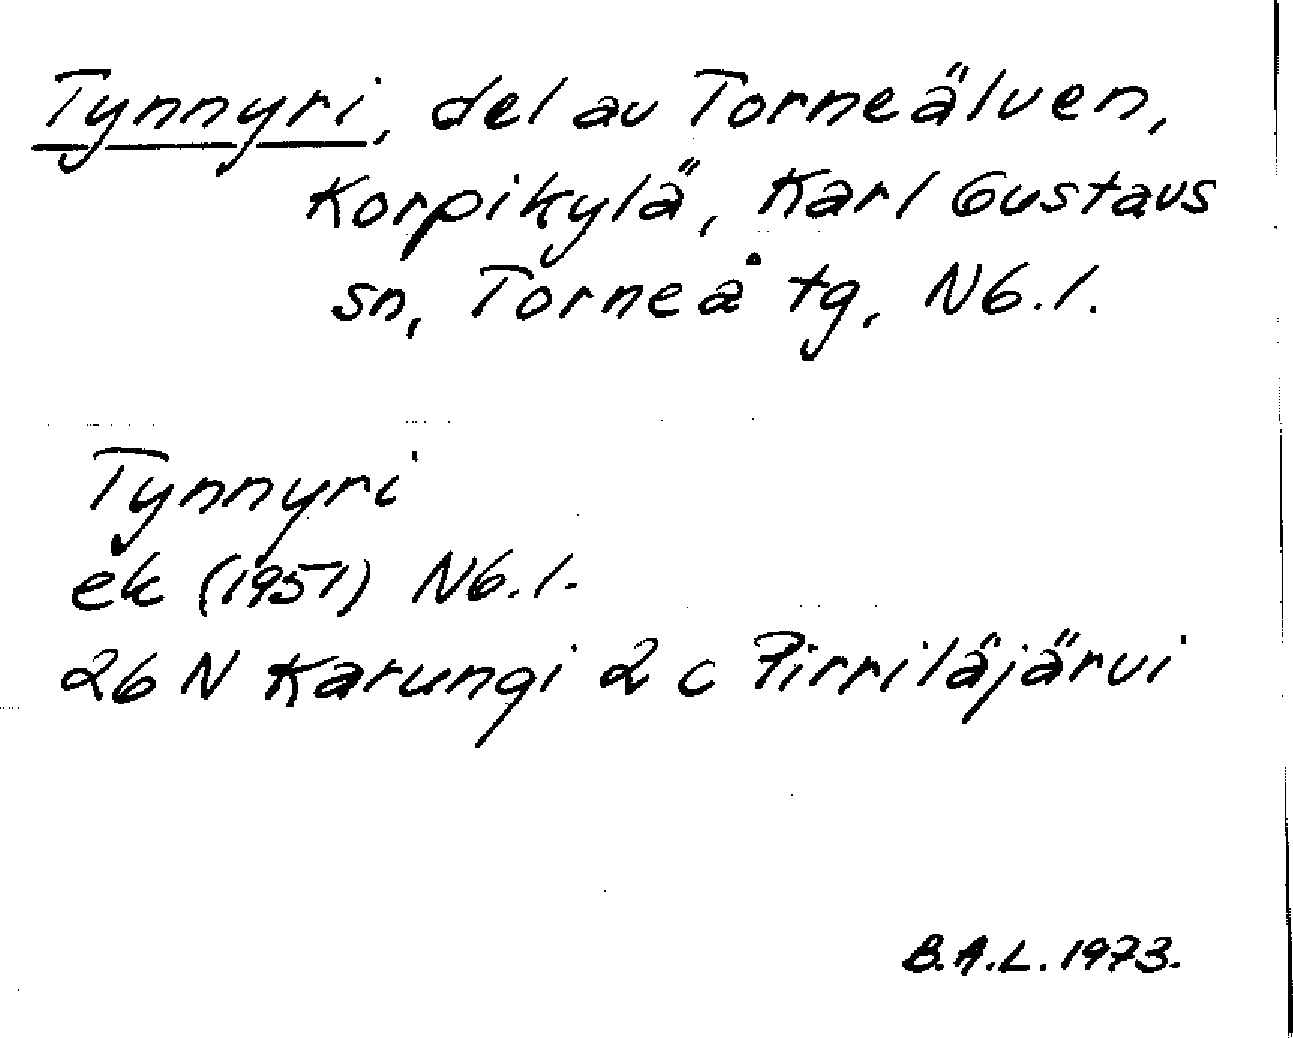 Tynnyri, del av Torneälven,
Korpikylä, Karl Gustavs
sn, Torneå tg, Nb.l.
Tynnyri
ek (1951) Nb.l.
26 N Karungi 2 c Pirriläjärvi
B.A.L. 1973.